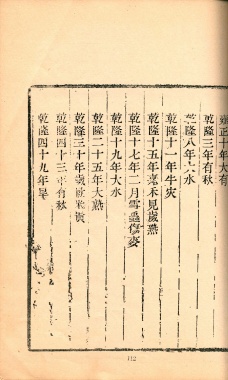 雍正十年大有
乾隆三年有秋
乾隆八年大水
乾隆十一年牛灾
乾隆十五年嘉禾見歲熟
乾隆十七年二月雪蟲傷麥
乾隆十九年大水
乾隆二十五年大熟
乾隆三十年歲
乾隆四十三年有秋
乾隆四十九年旱
112